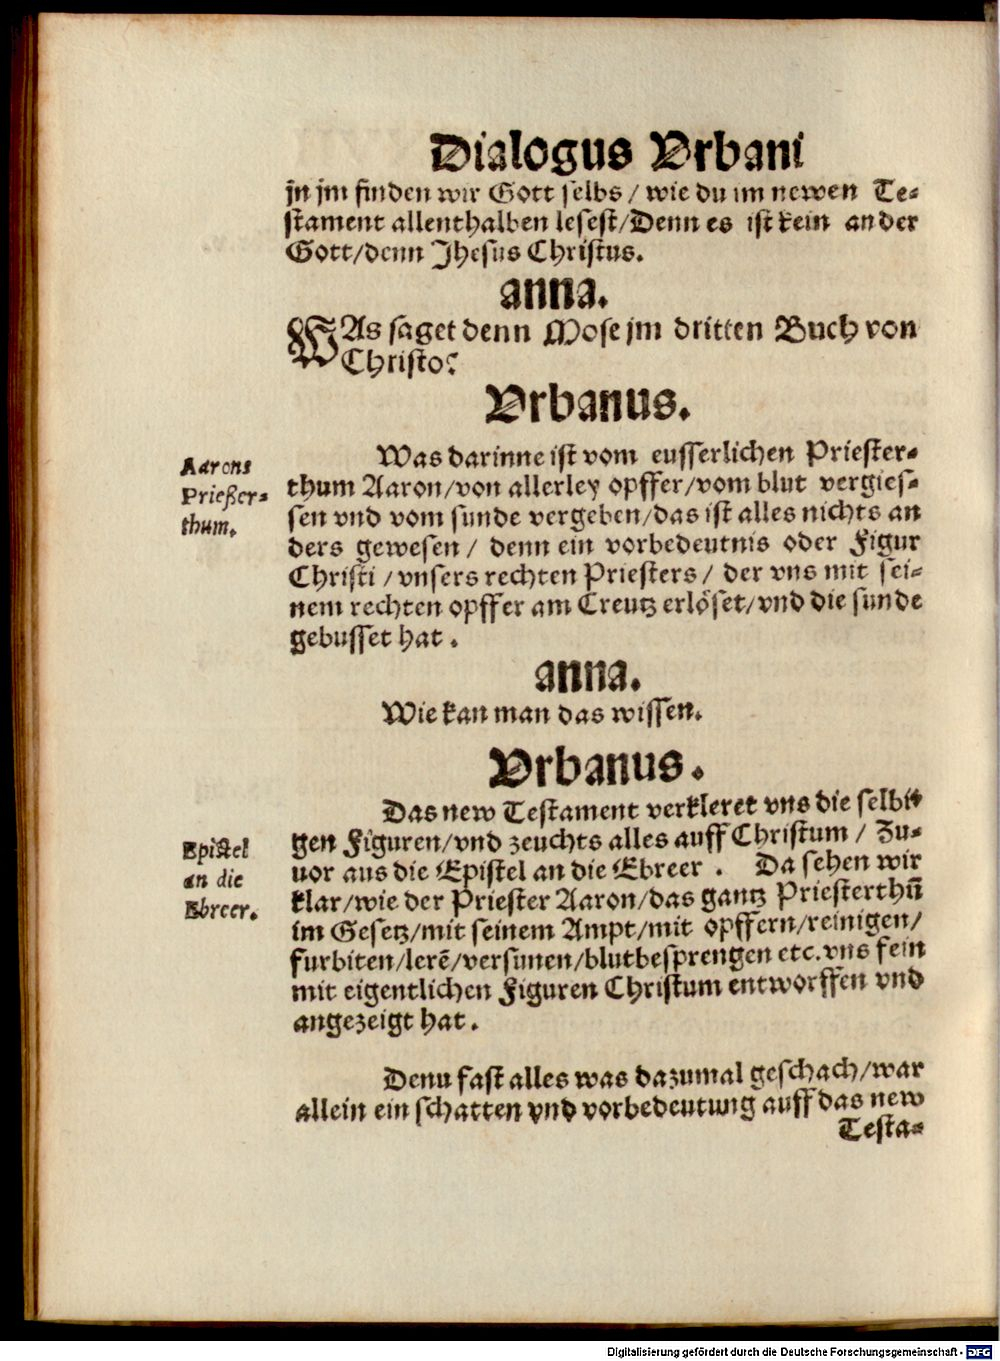 Dialogus Vrbani
jn jm finden wir Gott selbs / wie du im newen Te-
stament allenthalben lesest/Denn es ist kein ander
Gott/denn Jhesus Christus.
anna.
WAs saget denn Mose jm dritten Buch von
Christo?
Vrbanus.
Was darinne ist vom eusserlichen Priester-
Aarons
Priester-
thum.
thum Aaron/von allerley opffer/vom blut vergies-
sen vnd vom sunde vergeben/das ist alles nichts an
ders gewesen / denn ein vorbedeutnis oder Figur
Christi / vnsers rechten Priesters / der vns mit sei-
nem rechten opffer am Creutz erlöset/vnd die sunde
gebusset hat.
anna.
Wie kan man das wissen.
Vrbanus.
Das new Testament verkleret vns die selbi-
gen Figuren/vnd zeuchts alles auff Christum / Zu-
Epistel
an die
Ebreer.
uor aus die Epistel an die Ebreer. Da sehen wir
klar/wie der Priester Aaron/das gantz Priesterthū
im Gesetz/mit seinem Ampt/mit opffern/reinigen/
furbiten/lerē/versunen/blutbesprengen etc. vns fein
mit eigentlichen Figuren Christum entworffen vnd
angezeigt hat.
Denn fast alles was dazumal geschach/war
allein ein schatten vnd vorbedeutung auff das new
Testa-
Digitalisierung gefördert durch die Deutsche Forschungsgemeinschaft - DFG